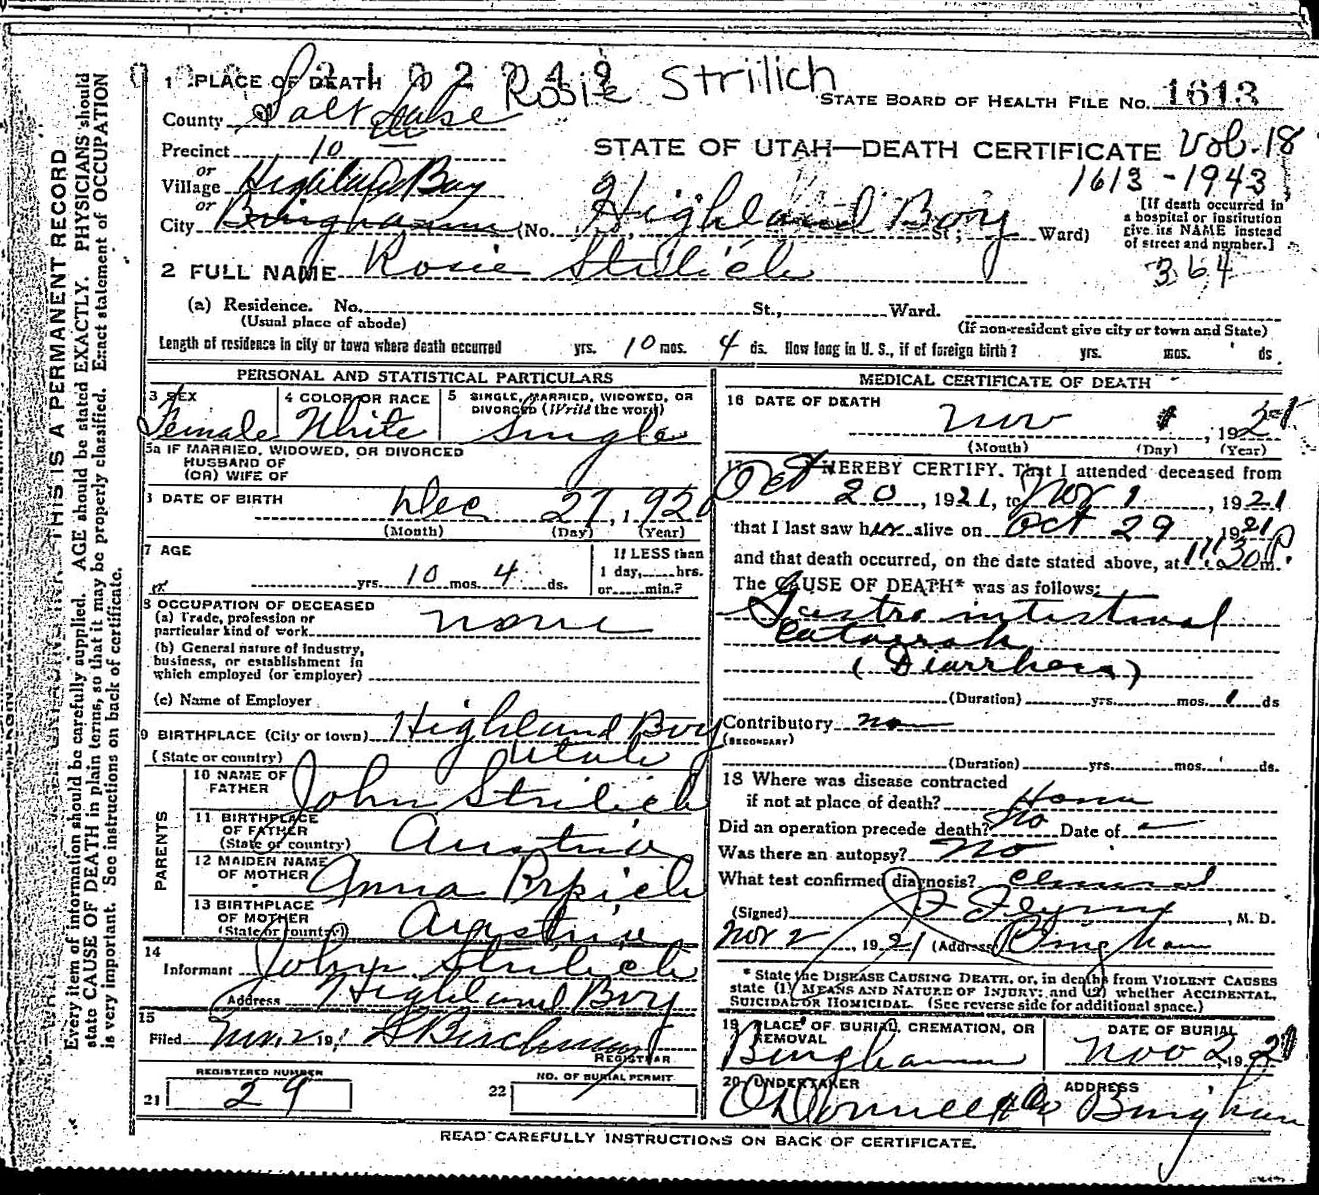 0 0 0 2 1 0 2 2 4 9
Rosie Strilich
1 PLACE OF DEATH
STATE BOARD OF HEALTH FILE No. 1613
County Salt Lake
Precinct 10
STATE OF UTAH—DEATH CERTIFICATE Vol. 18
1613 - 1943
or
Village Highland Boy
or
City Bingham (No. Highland Boy St.; Ward)
[If death occurred in
a hospital or institution
give its NAME instead
of street and number.]
364
2 FULL NAME Rosie Strilich
(a) Residence. No. St., Ward.
(Usual place of abode)
(If non-resident give city or town and State)
Length of residence in city or town where death occurred yrs. 10 mos. 4 ds. How long in U. S., if of foreign birth? yrs. mos. ds.
PERSONAL AND STATISTICAL PARTICULARS
3 SEX Female
4 COLOR OR RACE White
5 SINGLE, MARRIED, WIDOWED, OR
DIVORCED (Write the word)
Single
5a IF MARRIED, WIDOWED, OR DIVORCED
HUSBAND OF
(OR) WIFE OF
6 DATE OF BIRTH Dec 27, 1920
(Month) (Day) (Year)
7 AGE
yrs. 10 mos. 4 ds.
If LESS than
1 day, hrs.
or min.?
8 OCCUPATION OF DECEASED
(a) Trade, profession or
particular kind of work none
(b) General nature of industry,
business, or establishment in
which employed (or employer)
(c) Name of Employer
9 BIRTHPLACE (City or town) Highland Boy
(State or country) Utah
PARENTS
10 NAME OF
FATHER John Strilich
11 BIRTHPLACE
OF FATHER
(State or country) Austria
12 MAIDEN NAME
OF MOTHER Anna Prpich
13 BIRTHPLACE
OF MOTHER
(State or country) Austria
14
Informant John Strilich
Address Highland Boy
15
Filed Nov. 2 19
REGISTRAR
REGISTERED NUMBER
21 29
NO. OF BURIAL PERMIT
22
MEDICAL CERTIFICATE OF DEATH
16 DATE OF DEATH
Nov 1, 1921
(Month) (Day) (Year)
17 I HEREBY CERTIFY, That I attended deceased from
Oct 20, 1921, to Nov 1, 1921
that I last saw her alive on Oct 29 1921
and that death occurred, on the date stated above, at 11:30 P. m.
The CAUSE OF DEATH* was as follows:
Gastro intestinal
Catarrah
(Diarrhoea)
(Duration) yrs. mos. ds
Contributory no
(SECONDARY)
(Duration) yrs. mos. ds.
18 Where was disease contracted
if not at place of death? Home
Did an operation precede death? No Date of —
Was there an autopsy? No
What test confirmed diagnosis? Clinical
(Signed) , M. D.
Nov 2, 1921 (Address) Bingham
* State the DISEASE CAUSING DEATH, or, in deaths from VIOLENT CAUSES
state (1) MEANS AND NATURE OF INJURY; and (2) whether ACCIDENTAL,
SUICIDAL OR HOMICIDAL. (See reverse side for additional space.)
19 PLACE OF BURIAL, CREMATION, OR
REMOVAL
Bingham
DATE OF BURIAL
Nov 2, 192
20 UNDERTAKER
O'Donnell & Co
ADDRESS
Bingham
READ CAREFULLY INSTRUCTIONS ON BACK OF CERTIFICATE.
THIS IS A PERMANENT RECORD
Every item of information should be carefully supplied. AGE should be stated EXACTLY. PHYSICIANS should
state CAUSE OF DEATH in plain terms, so that it may be properly classified. Exact statement of OCCUPATION
is very important. See instructions on back of certificate.